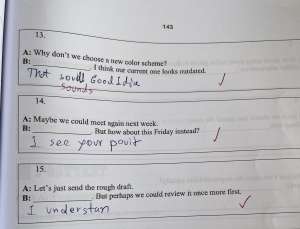 143
13.
A: Why don't we choose a new color scheme?
B: ____________. I think our current one looks outdated.
That Good Idia
Sounds
14.
A: Maybe we could meet again next week.
B: ____________. But how about this Friday instead?
I see your pouit
15.
A: Let's just send the rough draft.
B: ____________. But perhaps we could review it once more first.
I understan